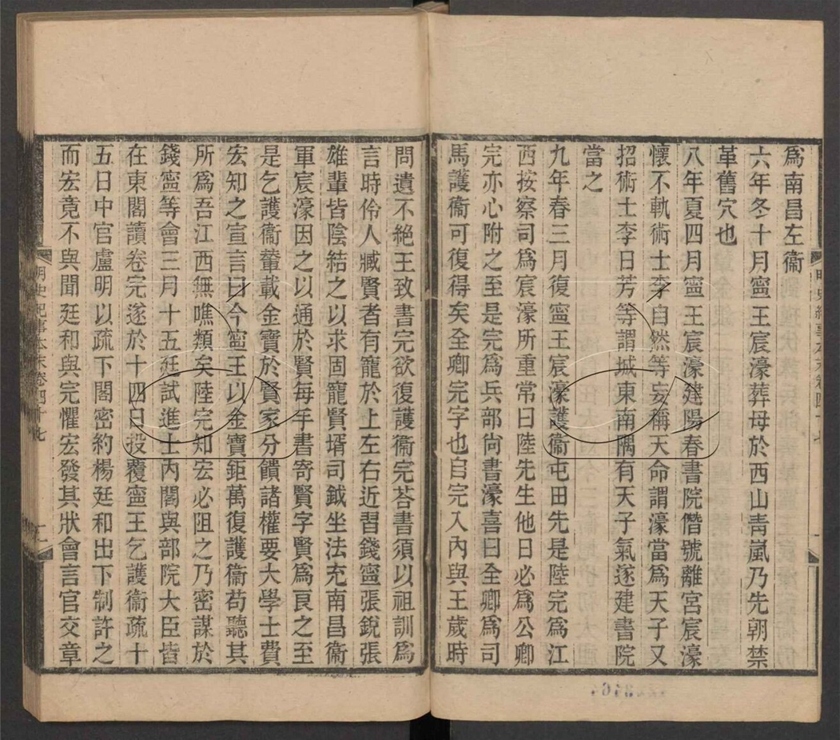 爲南昌左衞
六年冬十月寗王宸濠葬母於西山靑嵐乃先朝禁
革舊穴也
八年夏四月寗王宸濠建陽春書院僭號離宮宸濠
懷不軌術士李自然等妄稱天命謂濠當爲天子又
招術士李日芳等謂城東南隅有天子氣遂建書院
當之
九年春三月復寗王宸濠護衞屯田先是陸完爲江
西按察司爲宸濠所重常曰陸先生他日必爲公卿
完亦心附之至是完爲兵部尙書濠喜曰全卿爲司
馬護衞可復得矣全卿完字也自完入內與王歲時
問遺不絕王致書完欲復護衞完荅書須以祖訓爲
言時伶人臧賢者有寵於上左右近習錢寗張銳張
雄輩皆陰結之以求固寵賢壻司鉞坐法充南昌衞
軍宸濠因之以通於賢每手書寄賢字賢爲良之至
是乞護衞輦載金寶於賢家分饋諸權要大學士費
宏知之宣言曰今寗王以金寶鉅萬復護衞苟聽其
所爲吾江西無噍類矣陸完知宏必阻之乃密謀於
錢寗等會三月十五廷試進士內閣與部院大臣皆
在東閣讀卷完遂於十四日投覆寗王乞護衞疏十
五日中官盧明以疏下閣密約楊廷和出下制許之
而宏竟不與聞廷和與完懼宏發其狀會言官交章
明史紀事本末卷四十七